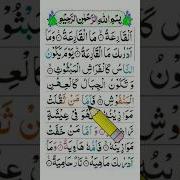 بِسْمِ اللهِ الرَّحْمٰنِ الرَّحِيْمِ
اَلْقَارِعَةُ ۝ مَا الْقَارِعَةُ ۝ وَمَآ
اَدْرٰىكَ مَا الْقَارِعَةُ ۝ يَوْمَ يَكُوْنُ
النَّاسُ كَالْفَرَاشِ الْمَبْثُوْثِ ۝
وَتَكُوْنُ الْجِبَالُ كَالْعِهْنِ
الْمَنْفُوْشِ ۝ فَاَمَّا مَنْ ثَقُلَتْ
مَوَازِيْنُهٗ ۝ فَهُوَ فِيْ عِيْشَةٍ
رَّاضِيَةٍ ۝ وَاَمَّا مَنْ خَفَّتْ
مَوَازِيْنُهٗ ۝ فَاُمُّهٗ هَاوِيَةٌ ۝ وَمَآ
اَدْرٰىكَ مَاهِيَهْ ۝ نَارٌ حَامِيَةٌ ۝